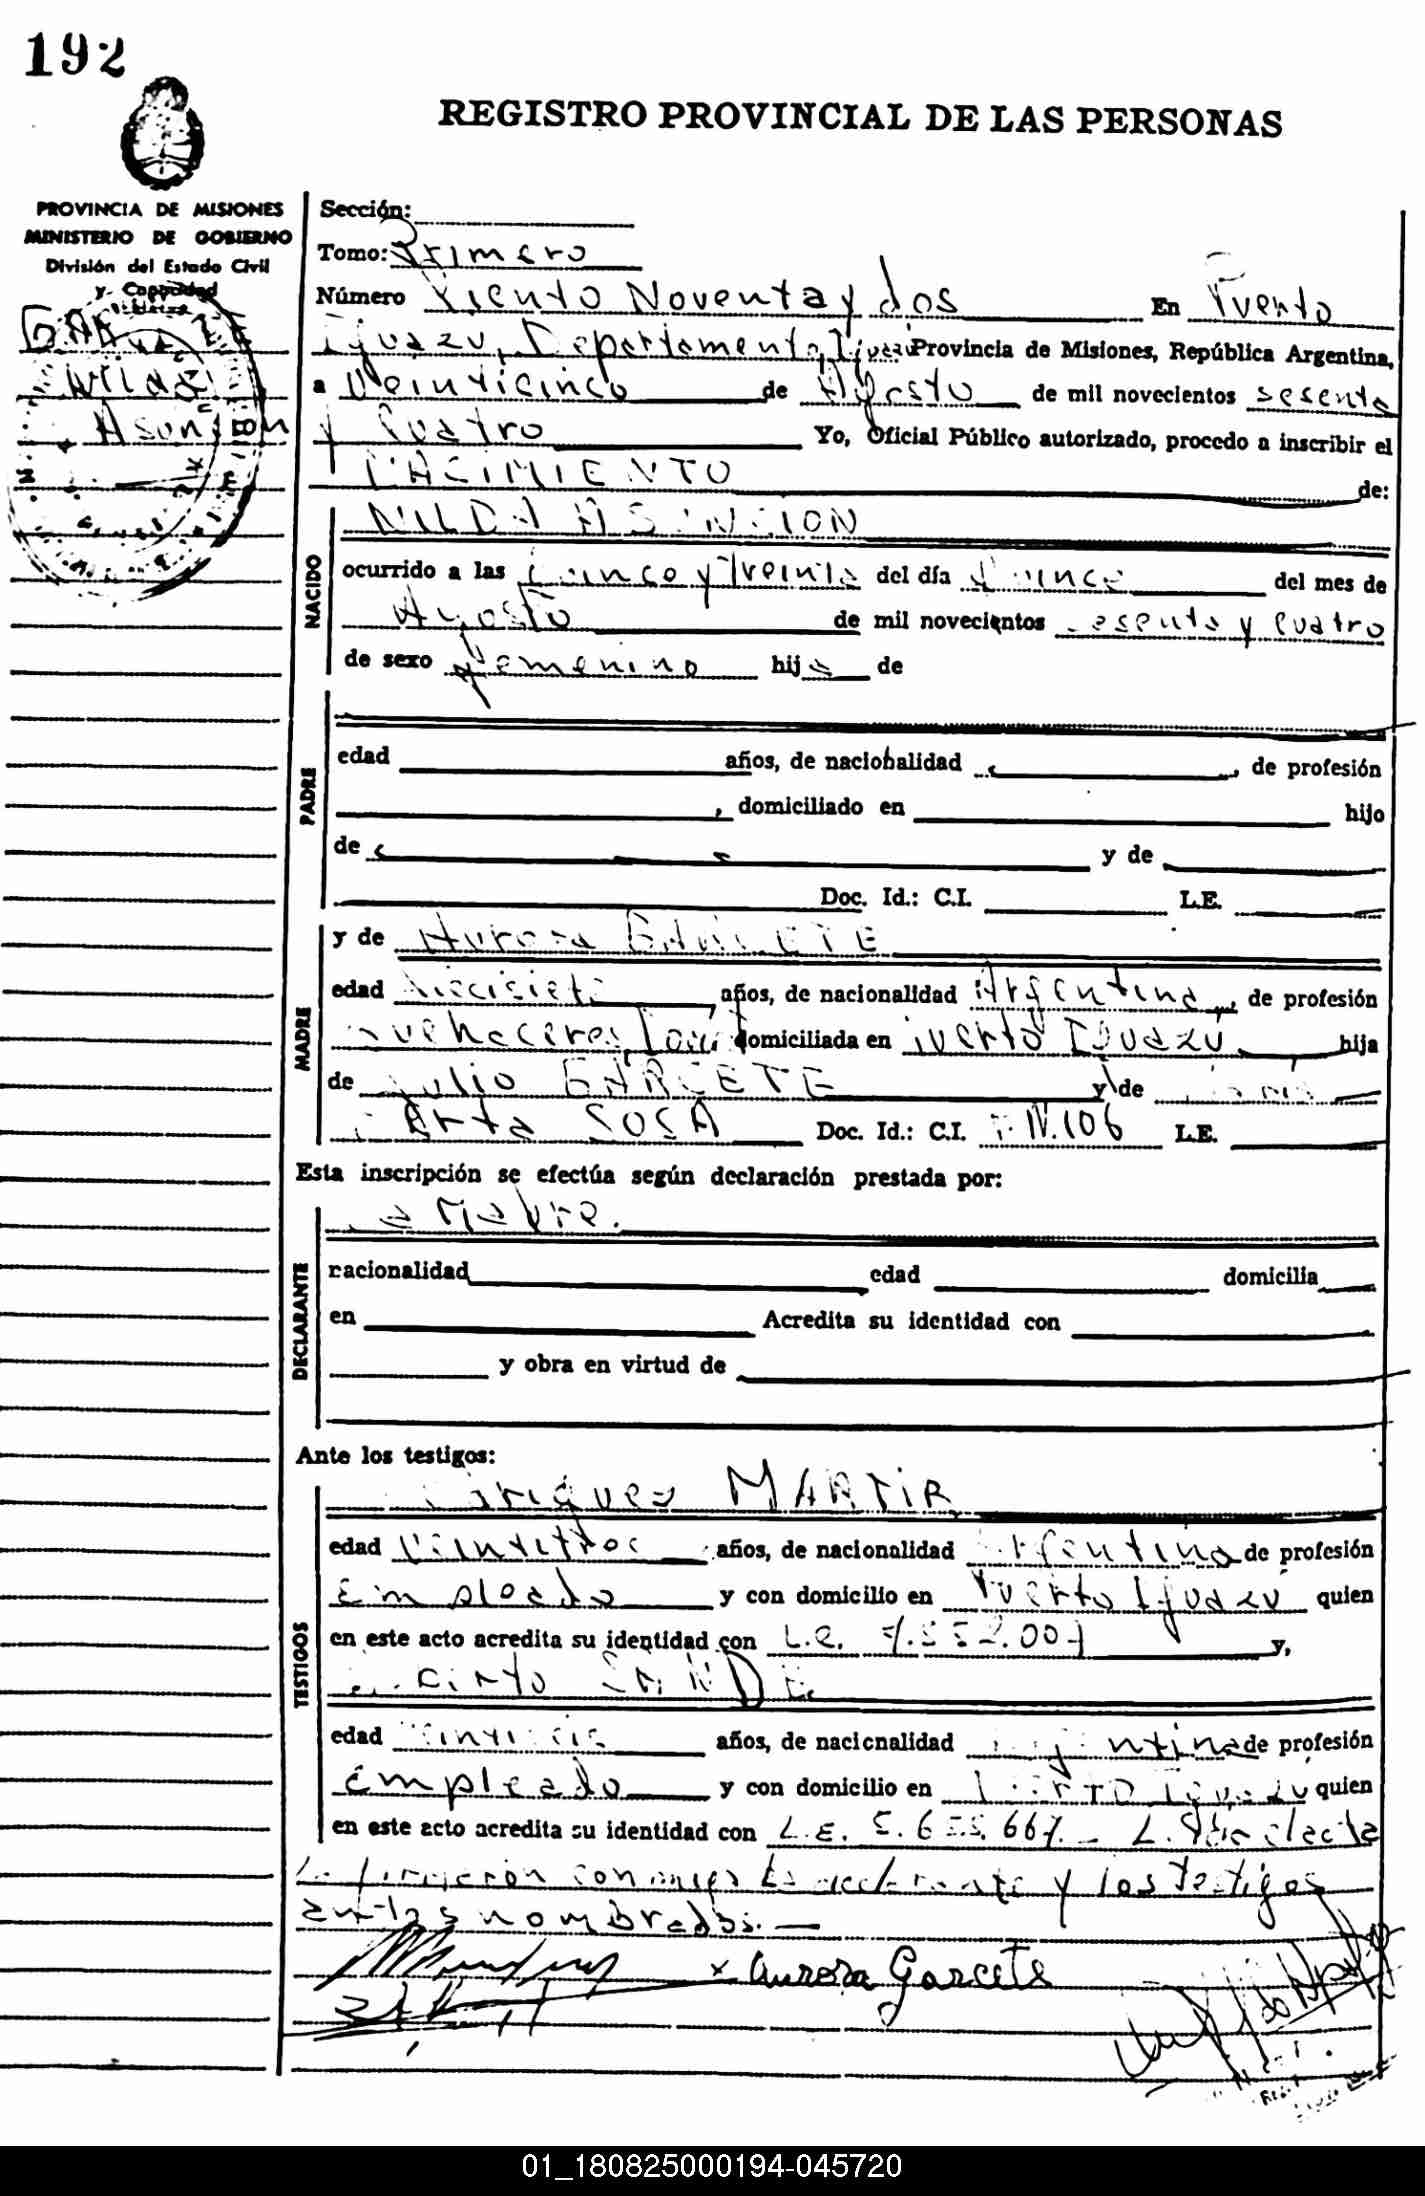 192
REGISTRO PROVINCIAL DE LAS PERSONAS
PROVINCIA DE MISIONES
MINISTERIO DE GOBIERNO
División del Estado Civil
y Capacidad
Nilda
Asunsion
Sección:
Tomo: Primero
Número Ciento Noventa y dos En Puerto
Iguazu, Departamento Iguazú Provincia de Misiones, República Argentina,
a Veinticinco de Agosto de mil novecientos sesenta
y Cuatro Yo, Oficial Público autorizado, procedo a inscribir el
NACIMIENTO de:
NACIDO
NILDA ASUNSION
ocurrido a las Cinco y Treinta del día Quince del mes de
Agosto de mil novecientos sesenta y cuatro
de sexo femenino hija de
PADRE
edad años, de nacionalidad , de profesión
, domiciliado en hijo
de y de
Doc. Id.: C.I. L.E.
MADRE
y de Aurora GARCETE
edad Diecisiete años, de nacionalidad Argentina, de profesión
Quehaceres domiciliada en Puerto Iguazú hija
de Julio GARCETE y de
SOSA Doc. Id.: C.I. N.106 L.E.
Esta inscripción se efectúa según declaración prestada por:
DECLARANTE
La Madre.
nacionalidad edad domicilia
en Acredita su identidad con
y obra en virtud de
Ante los testigos:
TESTIGOS
MARTIR
edad Veintitres años, de nacionalidad Argentina de profesión
Empleado y con domicilio en Puerto Iguazú quien
en este acto acredita su identidad con L.E. y,
edad años, de nacionalidad Argentina de profesión
empleado y con domicilio en Puerto Iguazú quien
en este acto acredita su identidad con L.E. 5.655.667. L.
conmigo la declarante y los testigos
antes nombrados.
x Aurora Garcete
01_180825000194-045720